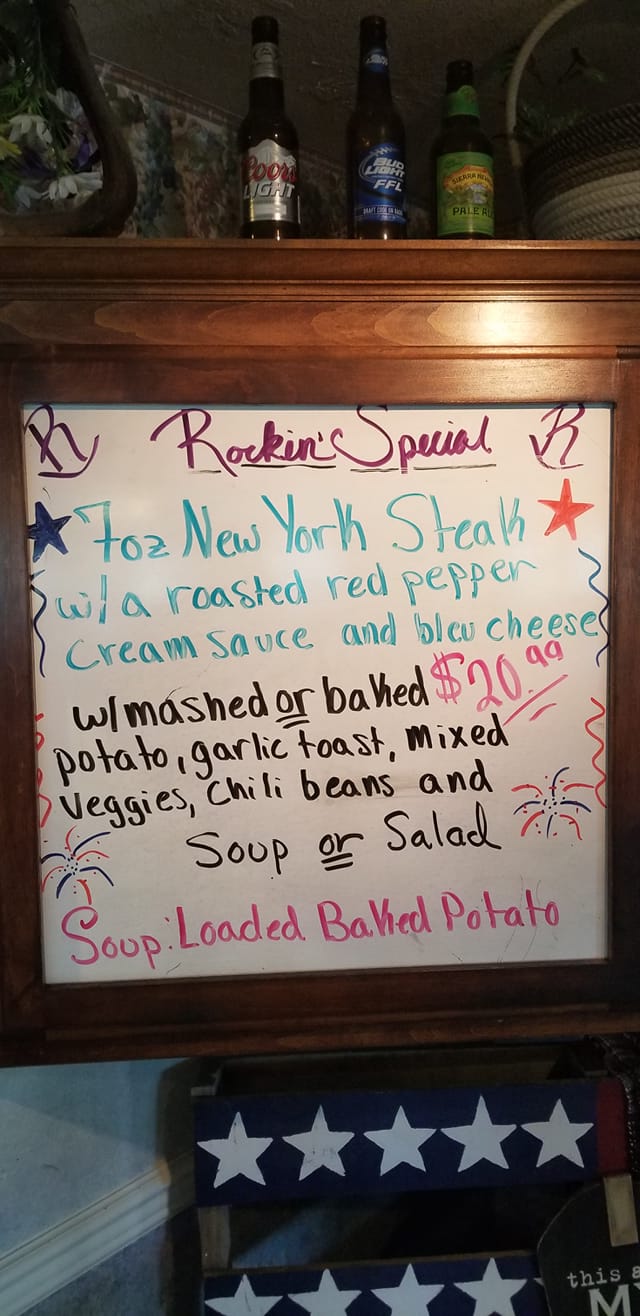 Coors
LIGHT
BUD
LIGHT
FFL
SIERRA
PALE
R Rockin' Special R
7oz New York Steak
w/a roasted red pepper
cream sauce and bleu cheese
w/mashed or baked $20.99
potato, garlic toast, mixed
veggies, chili beans and
Soup or Salad
Soup: Loaded Baked Potato
this